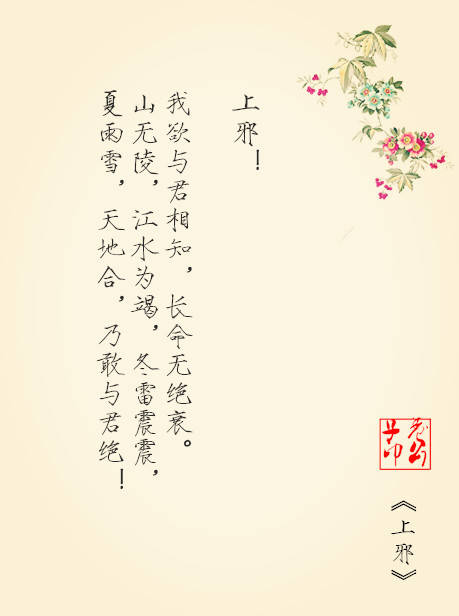 上邪！
我欲与君相知，长命无绝衰。
山无陵，江水为竭，冬雷震震，
夏雨雪，天地合，乃敢与君绝！
《上邪》